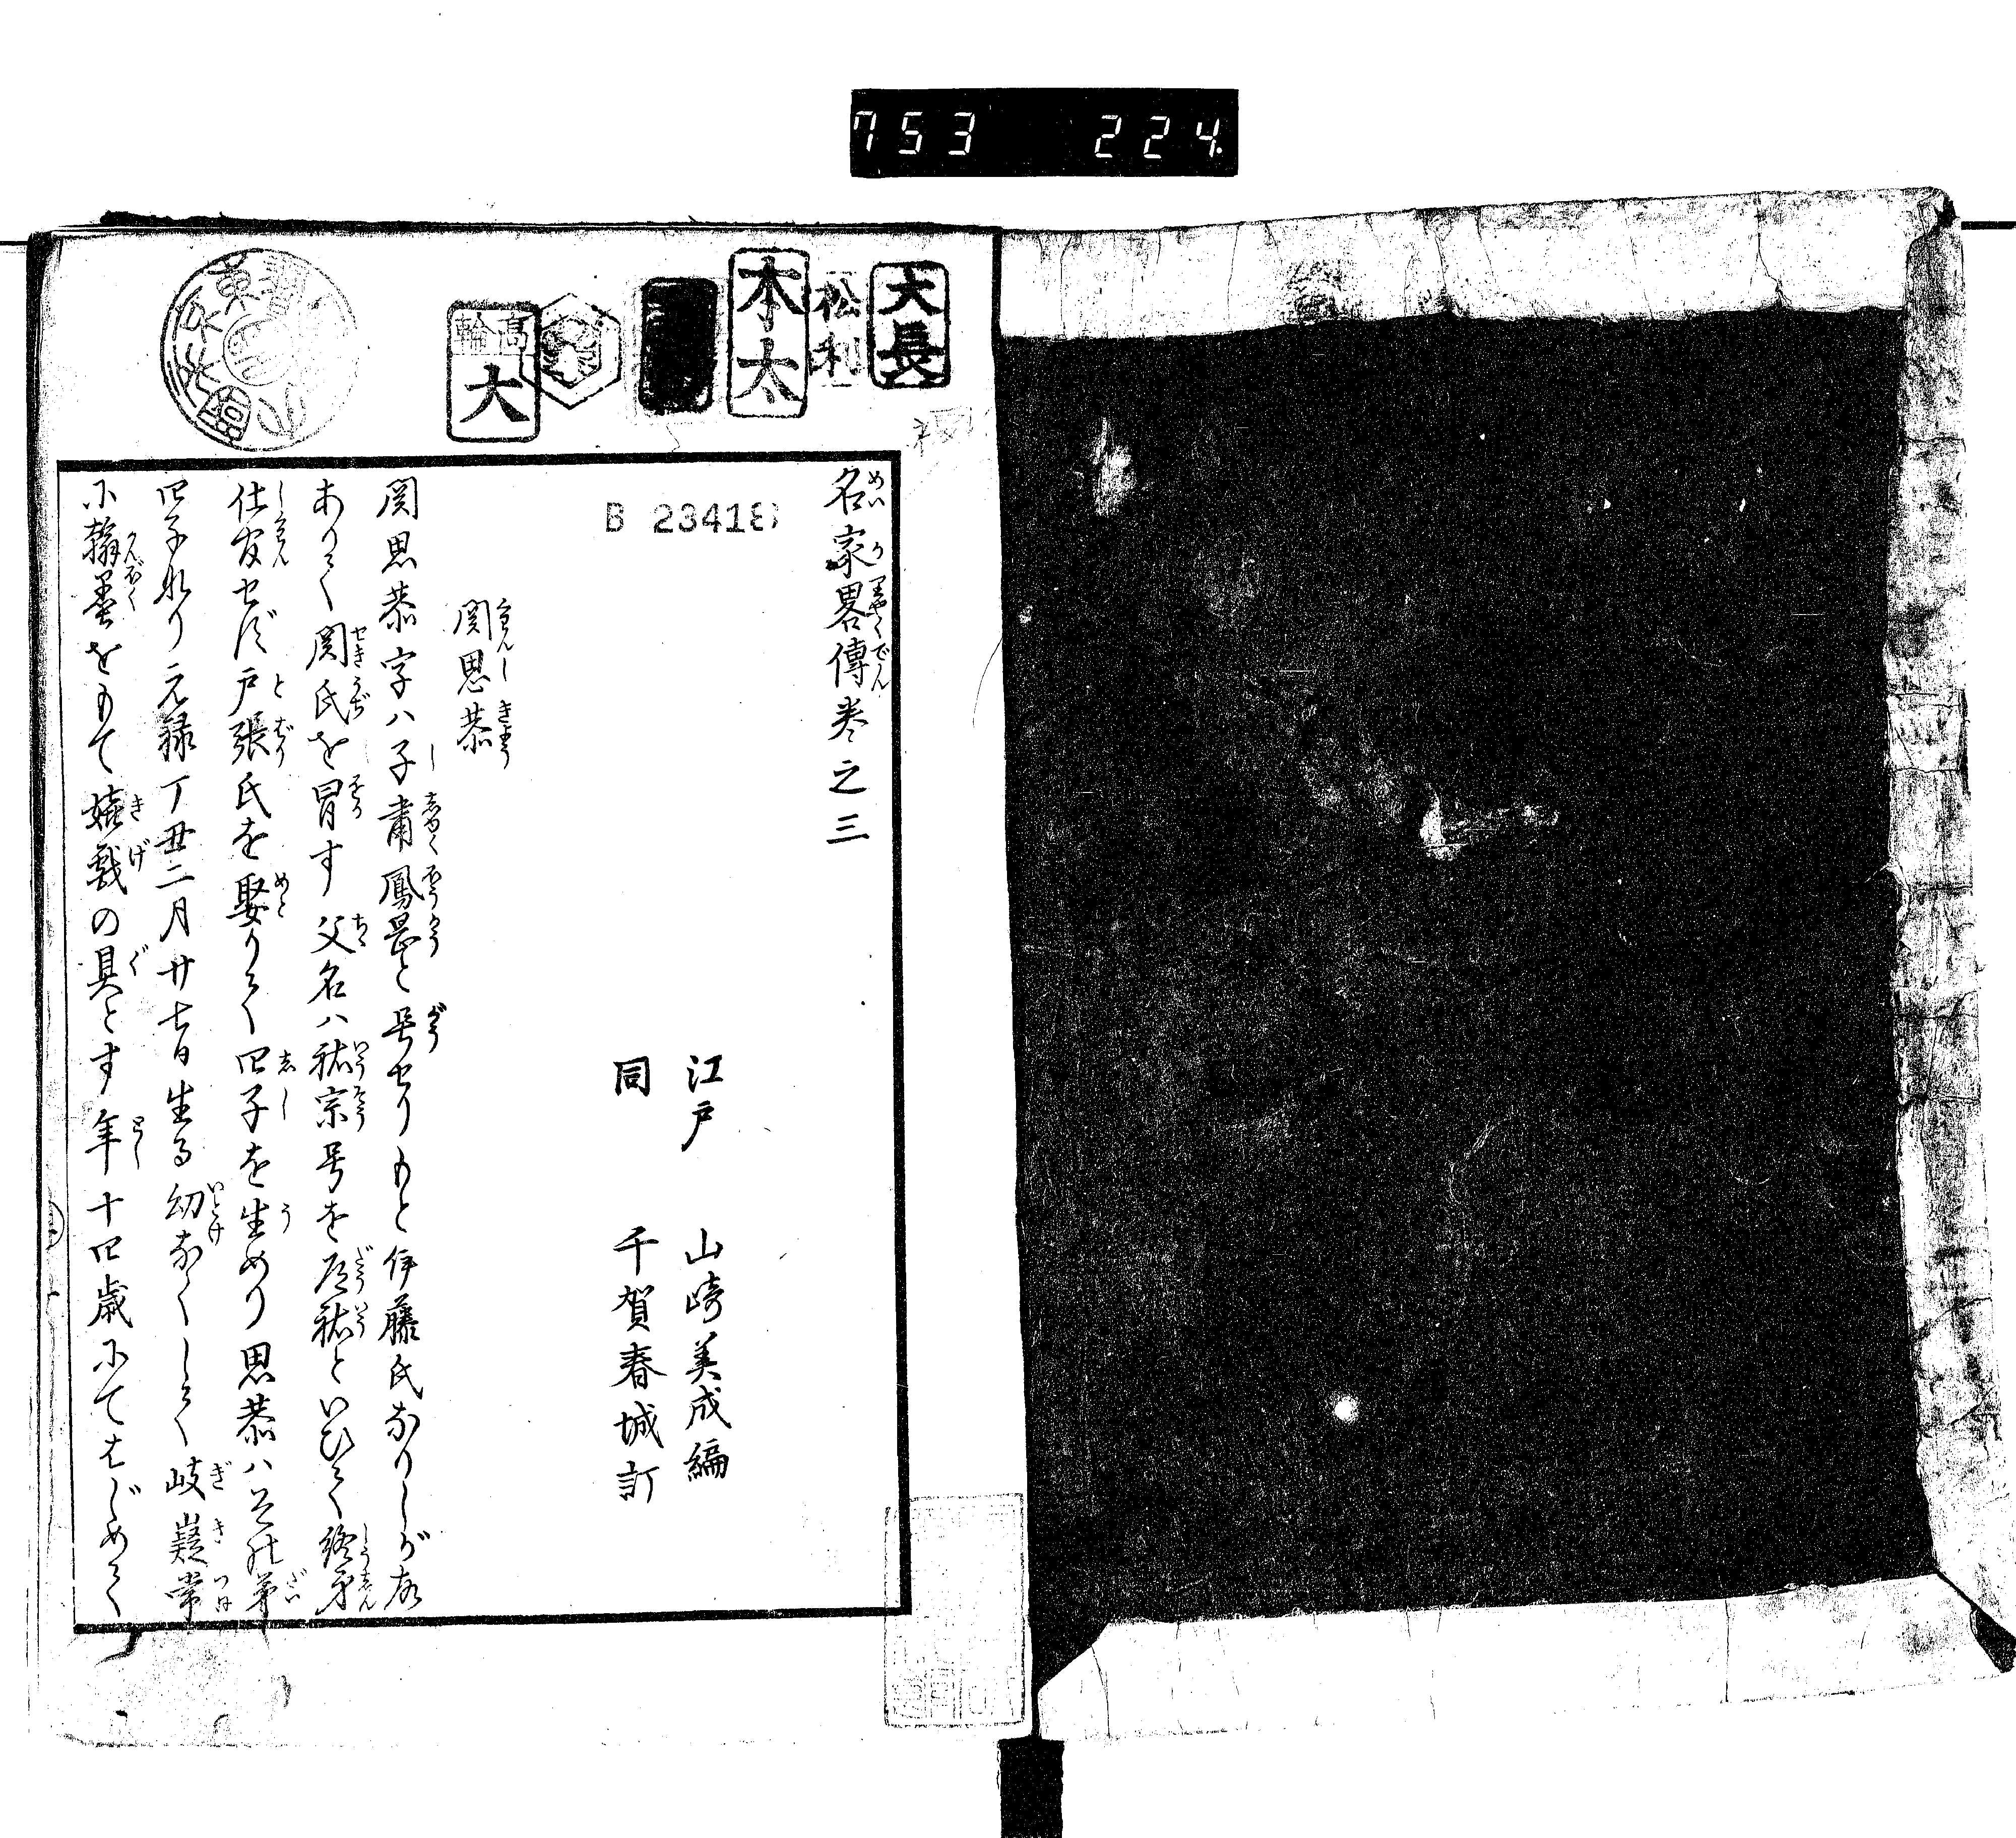 753 224
大長
松利
本太
高輪
大
B 23418
名家畧傳巻之三
江戸 山崎美成編
同 千賀春城訂
関思恭
関思恭字ハ子肅鳳岡と号せりもと伊藤氏なりしが故
ありて関氏を冒す父名ハ祐宗号を道祐といひて終身
仕官せず戸張氏を娶りて四子を生めり思恭ハその第
四子なり元禄丁丑二月廿七日生る幼なくして岐嶷常
に翰墨をもて嬉戯の具とす年十四歳にてはじめて